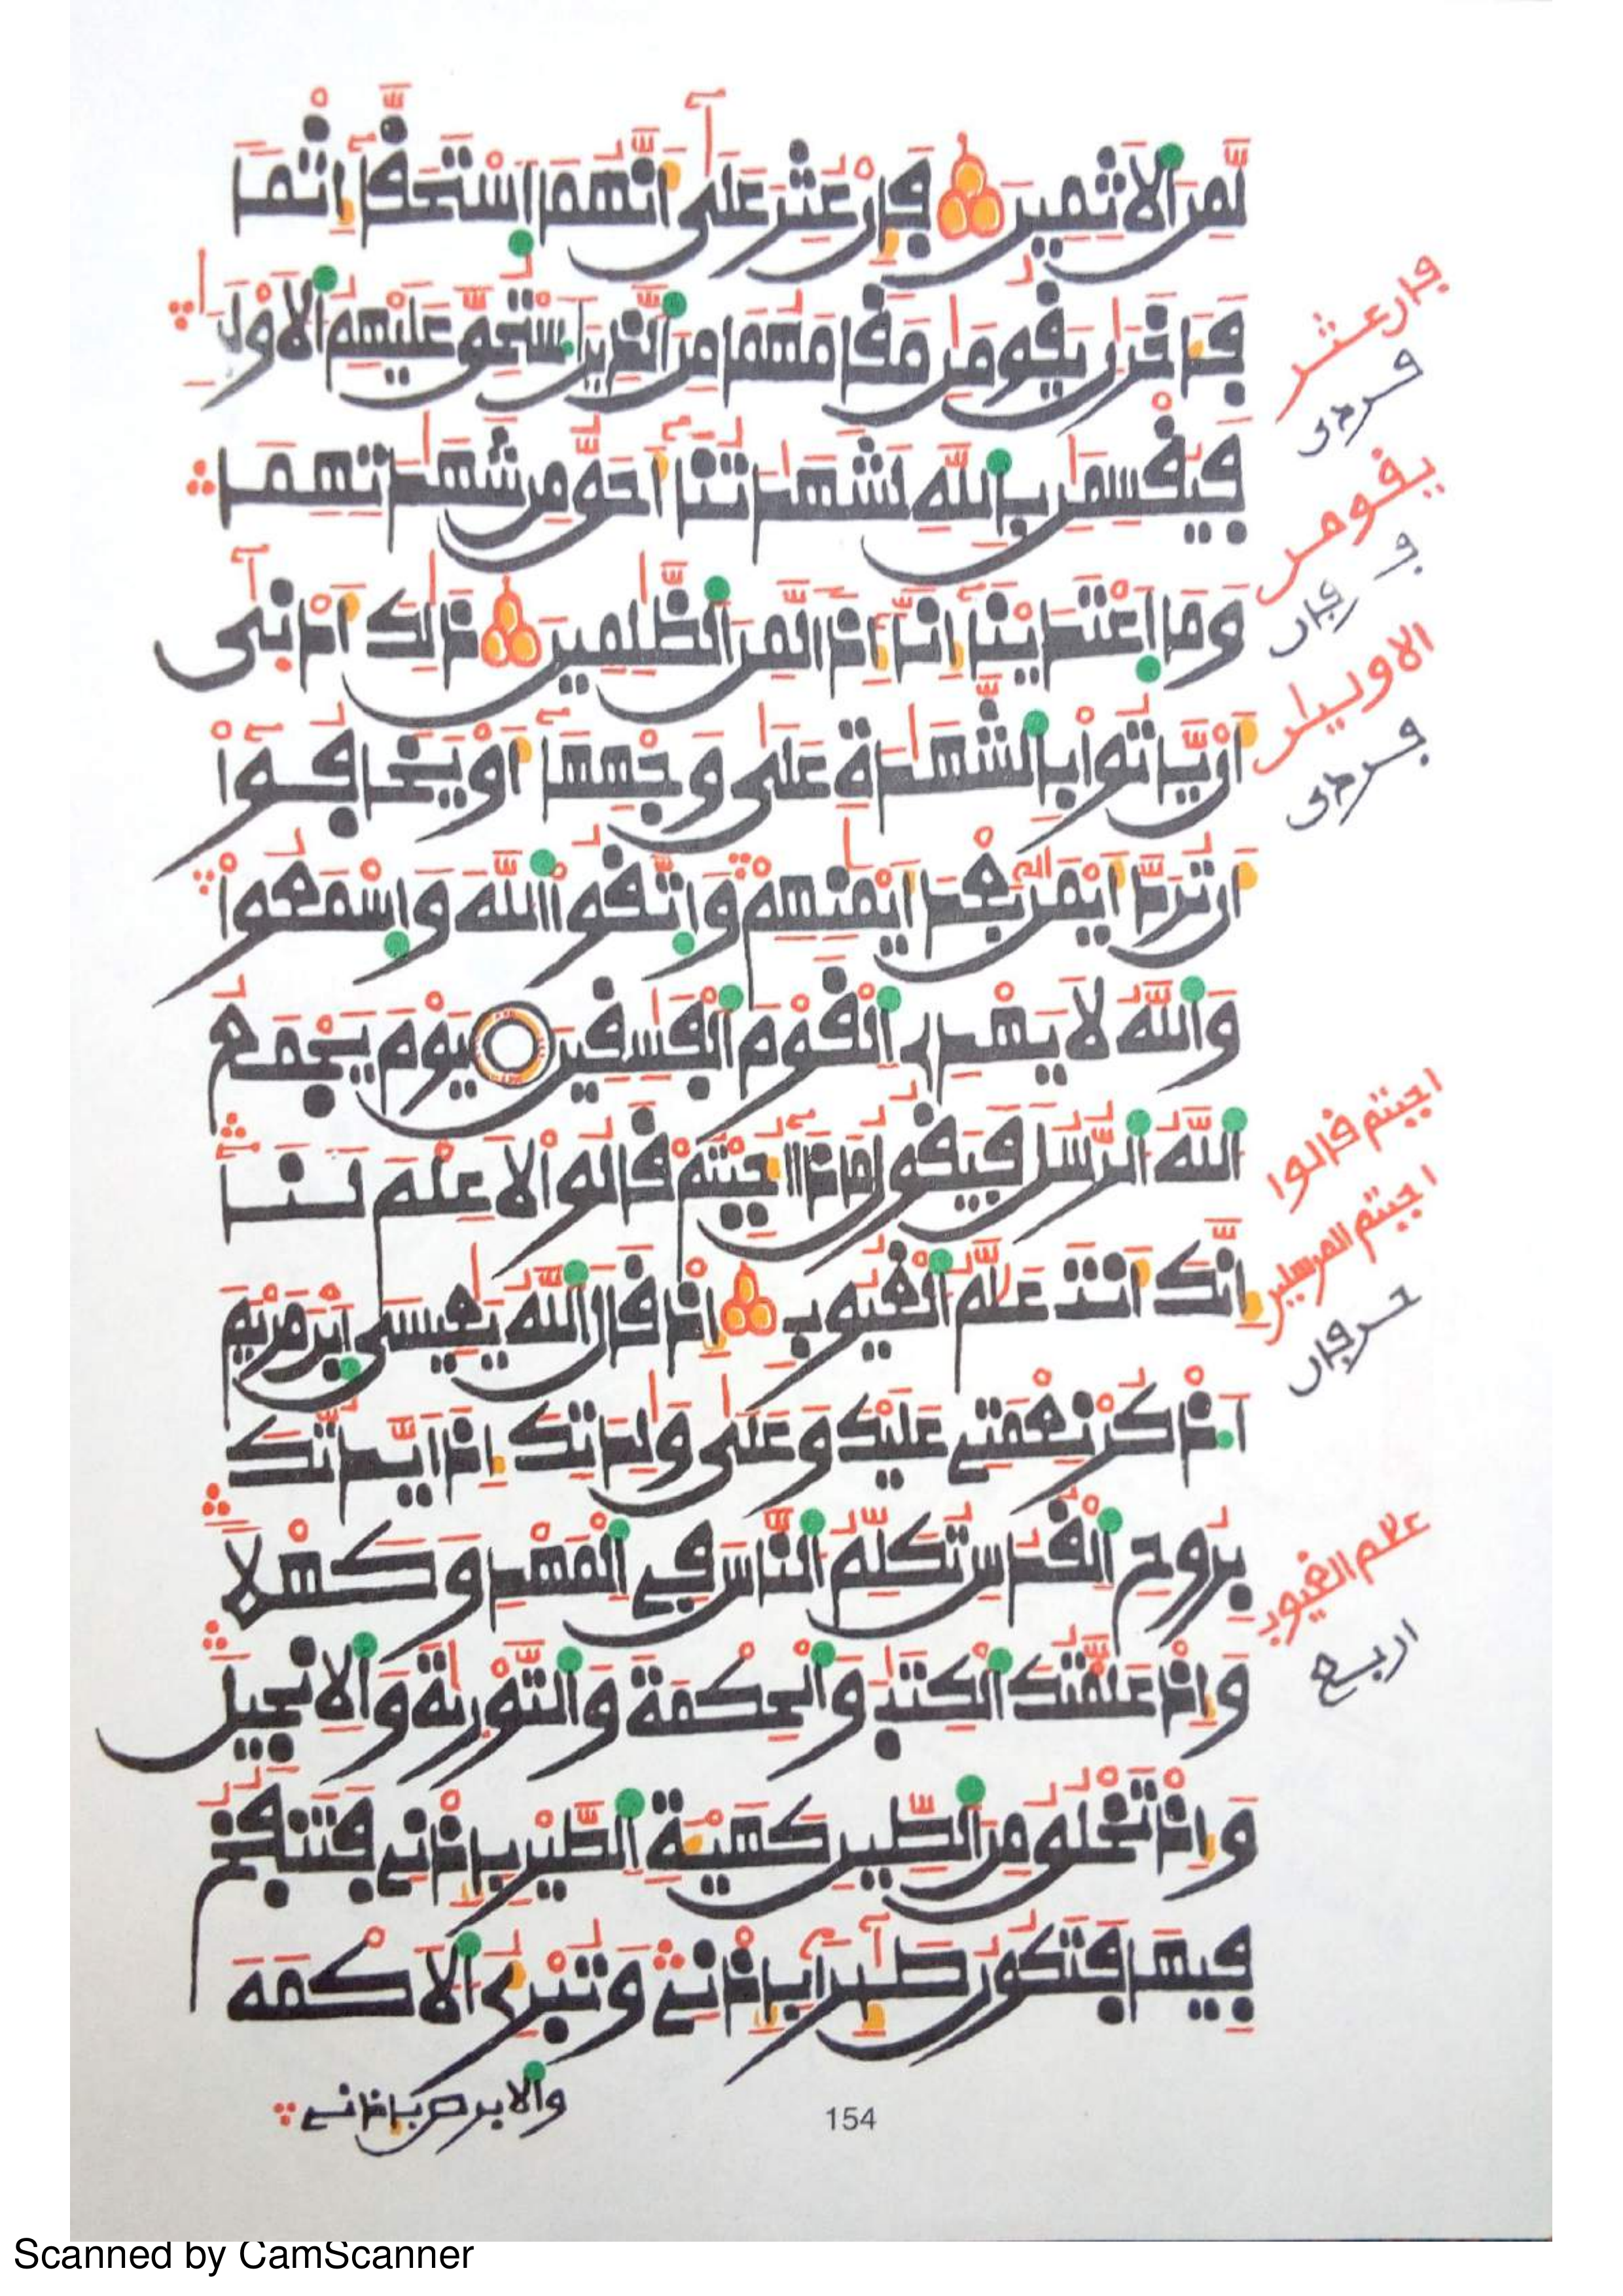 لَّمِنَ اَ۬لَاثِمِينَ فَإِنْ عُثِرَ عَلَىٰٓ أَنَّهُمَا اَ۪سْتَحَقَّآ إِثْماٗ
فَـَٔاخَرَٰنِ يَقُومَٰنِ مَقَامَهُمَا مِنَ اَ۬لذِينَ اَ۟سْتُحِقَّ عَلَيْهِمُ اُ۬لَاوْلَيَٰنِ
فَيُقْسِمَٰنِ بِاللَّهِ لَشَهَٰدَتُنَآ أَحَقُّ مِن شَهَٰدَتِهِمَا
وَمَا اَ۪عْتَدَيْنَآ إِنَّآ إِذاٗ لَّمِنَ اَ۬لظَّٰلِمِينَ ذَٰلِكَ أَدْنَىٰٓ
أَنْ يَّاتُواْ بِالشَّهَٰدَةِ عَلَىٰ وَجْهِهَآ أَوْ يَخَافُوٓاْ
أَن تُرَدَّ أَيْمَٰنُۢ بَعْدَ أَيْمَٰنِهِمْ وَاتَّقُواْ اُ۬للَّهَ وَاسْمَعُواْ
وَاللَّهُ لَا يَهْدِے اِ۬لْقَوْمَ اَ۬لْفَٰسِقِينَ يَوْمَ يَجْمَعُ
اُ۬للَّهُ اُ۬لرُّسُلَ فَيَقُولُ مَاذَآ أُجِبْتُمْ قَالُواْ لَا عِلْمَ لَنَا
إِنَّكَ أَنتَ عَلَّٰمُ اُ۬لْغُيُوبِ إِذْ قَالَ اَ۬للَّهُ يَٰعِيسَى اَ۪بْنَ مَرْيَمَ
اَ۟ذْكُرْ نِعْمَتِے عَلَيْكَ وَعَلَىٰ وَٰلِدَتِكَ إِذْ أَيَّدتُّكَ
بِرُوحِ اِ۬لْقُدُسِ تُكَلِّمُ اُ۬لنَّاسَ فِے اِ۬لْمَهْدِ وَكَهْلاٗ
وَإِذْ عَلَّمْتُكَ اَ۬لْكِتَٰبَ وَالْحِكْمَةَ وَالتَّوْرَىٰةَ وَالِانجِيلَ
وَإِذْ تَخْلُقُ مِنَ اَ۬لطِّينِ كَهَيْـَٔةِ اِ۬لطَّيْرِ بِإِذْنِے فَتَنفُخُ
فِيهَا فَتَكُونُ طَٰٓئِراَۢ بِإِذْنِے وَتُبْرِئُ اُ۬لَاكْمَهَ
وَالَابْرَصَ بِإِذْنِے
فإن عثر
يقومن
الاولين
اجبتم قالوا
اجبتم المرسلين
علم الغيوب
اربع
154
Scanned by CamScanner